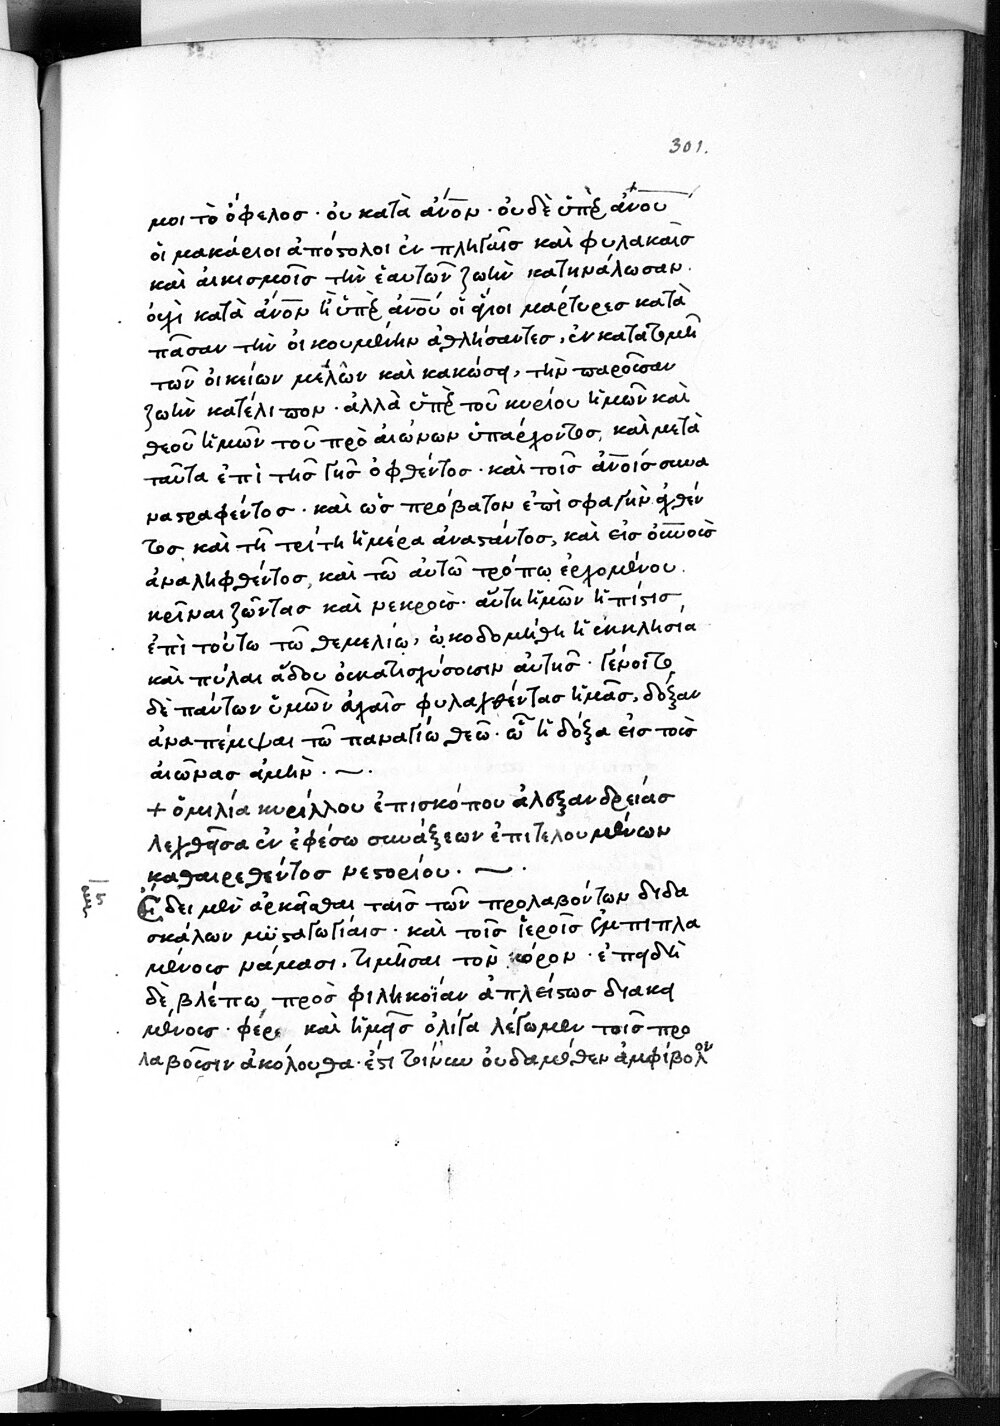 301.
μοι τὸ ὄφελοσ · οὐ κατὰ ἄνον · οὐδὲ ὑπὲρ ἀνου
οἱ μακάριοι ἀπόστολοι ἐν πληγαῖσ καὶ φυλακαῖσ
καὶ αἰκισμοῖσ τὴν ἑαυτῶν ζωὴν κατηνάλωσαν.
οὐχὶ κατὰ ἄνον ἢ ὑπὲρ ἀνου οἱ ἅγιοι μάρτυρεσ κατὰ
πᾶσαν τὴν οἰκουμένην ἀθλήσαντεσ, ἐν κατατομῆ
τῶν οἰκείων μελῶν καὶ κακώσει, τὴν παροῦσαν
ζωὴν κατέλιπον · ἀλλὰ ὑπὲρ τοῦ κυρίου ἡμῶν καὶ
θεοῦ ἡμῶν τοῦ πρὸ αἰώνων ὑπάρχοντοσ, καὶ μετὰ
ταῦτα ἐπὶ τῆσ γῆσ ὀφθέντοσ · καὶ τοῖσ ἀνοισ συνα
ναστραφέντοσ · καὶ ὡσ πρόβατον ἐπὶ σφαγὴν ἀχθέν
τοσ, καὶ τῆ τρίτη ἡμέρα ἀναστάντοσ, καὶ εἰσ οὐνουσ
ἀναληφθέντοσ, καὶ τῶ αὐτῶ τρόπω ἐρχομένου.
κρῖναι ζῶντασ καὶ νεκρούσ· αὕτη ἡμῶν ἡ πίστισ,
ἐπὶ τούτω τῶ θεμελίω, ὠκοδομήθη ἡ ἐκκλησία
καὶ πύλαι ἅδου οὐκατισχύσουσιν αὐτῆσ · γένοιτο
δὲ πάντων ὑμῶν εὐχαῖσ φυλαχθέντασ ἡμᾶσ, δόξαν
ἀναπέμψαι τῶ παναγίω θεῶ· ὧ ἡ δόξα εἰσ τοὺσ
αἰῶνασ ἀμὴν · ~ ·
+ ὁμιλία κυρίλλου ἐπισκόπου ἀλεξανδρείασ
λεχθεῖσα ἐν ἐφέσω συνάξεων ἐπιτελουμένων
καθαιρεθέντοσ νεστορίου · ~ ·
Ἔδει μὲν ἀρκεῖσθαι ταῖσ τῶν προλαβόντων διδα
σκάλων μυσταγωγίαισ · καὶ τοῖσ ἱεροῖσ ἐμπιπλα
μένουσ νάμασι, τιμῆσαι τὸν κόρον · ἐπειδὴ
δὲ βλέπω πρὸσ φιληκοΐαν ἀπλείστωσ διακει
μένουσ · φέρε καὶ ἡμεῖσ ὀλίγα λέγωμεν τοῖσ προ
λαβοῦσιν ἀκόλουθα · ἔστι τοίνυν οὐδαμόθεν ἀμφίβολον